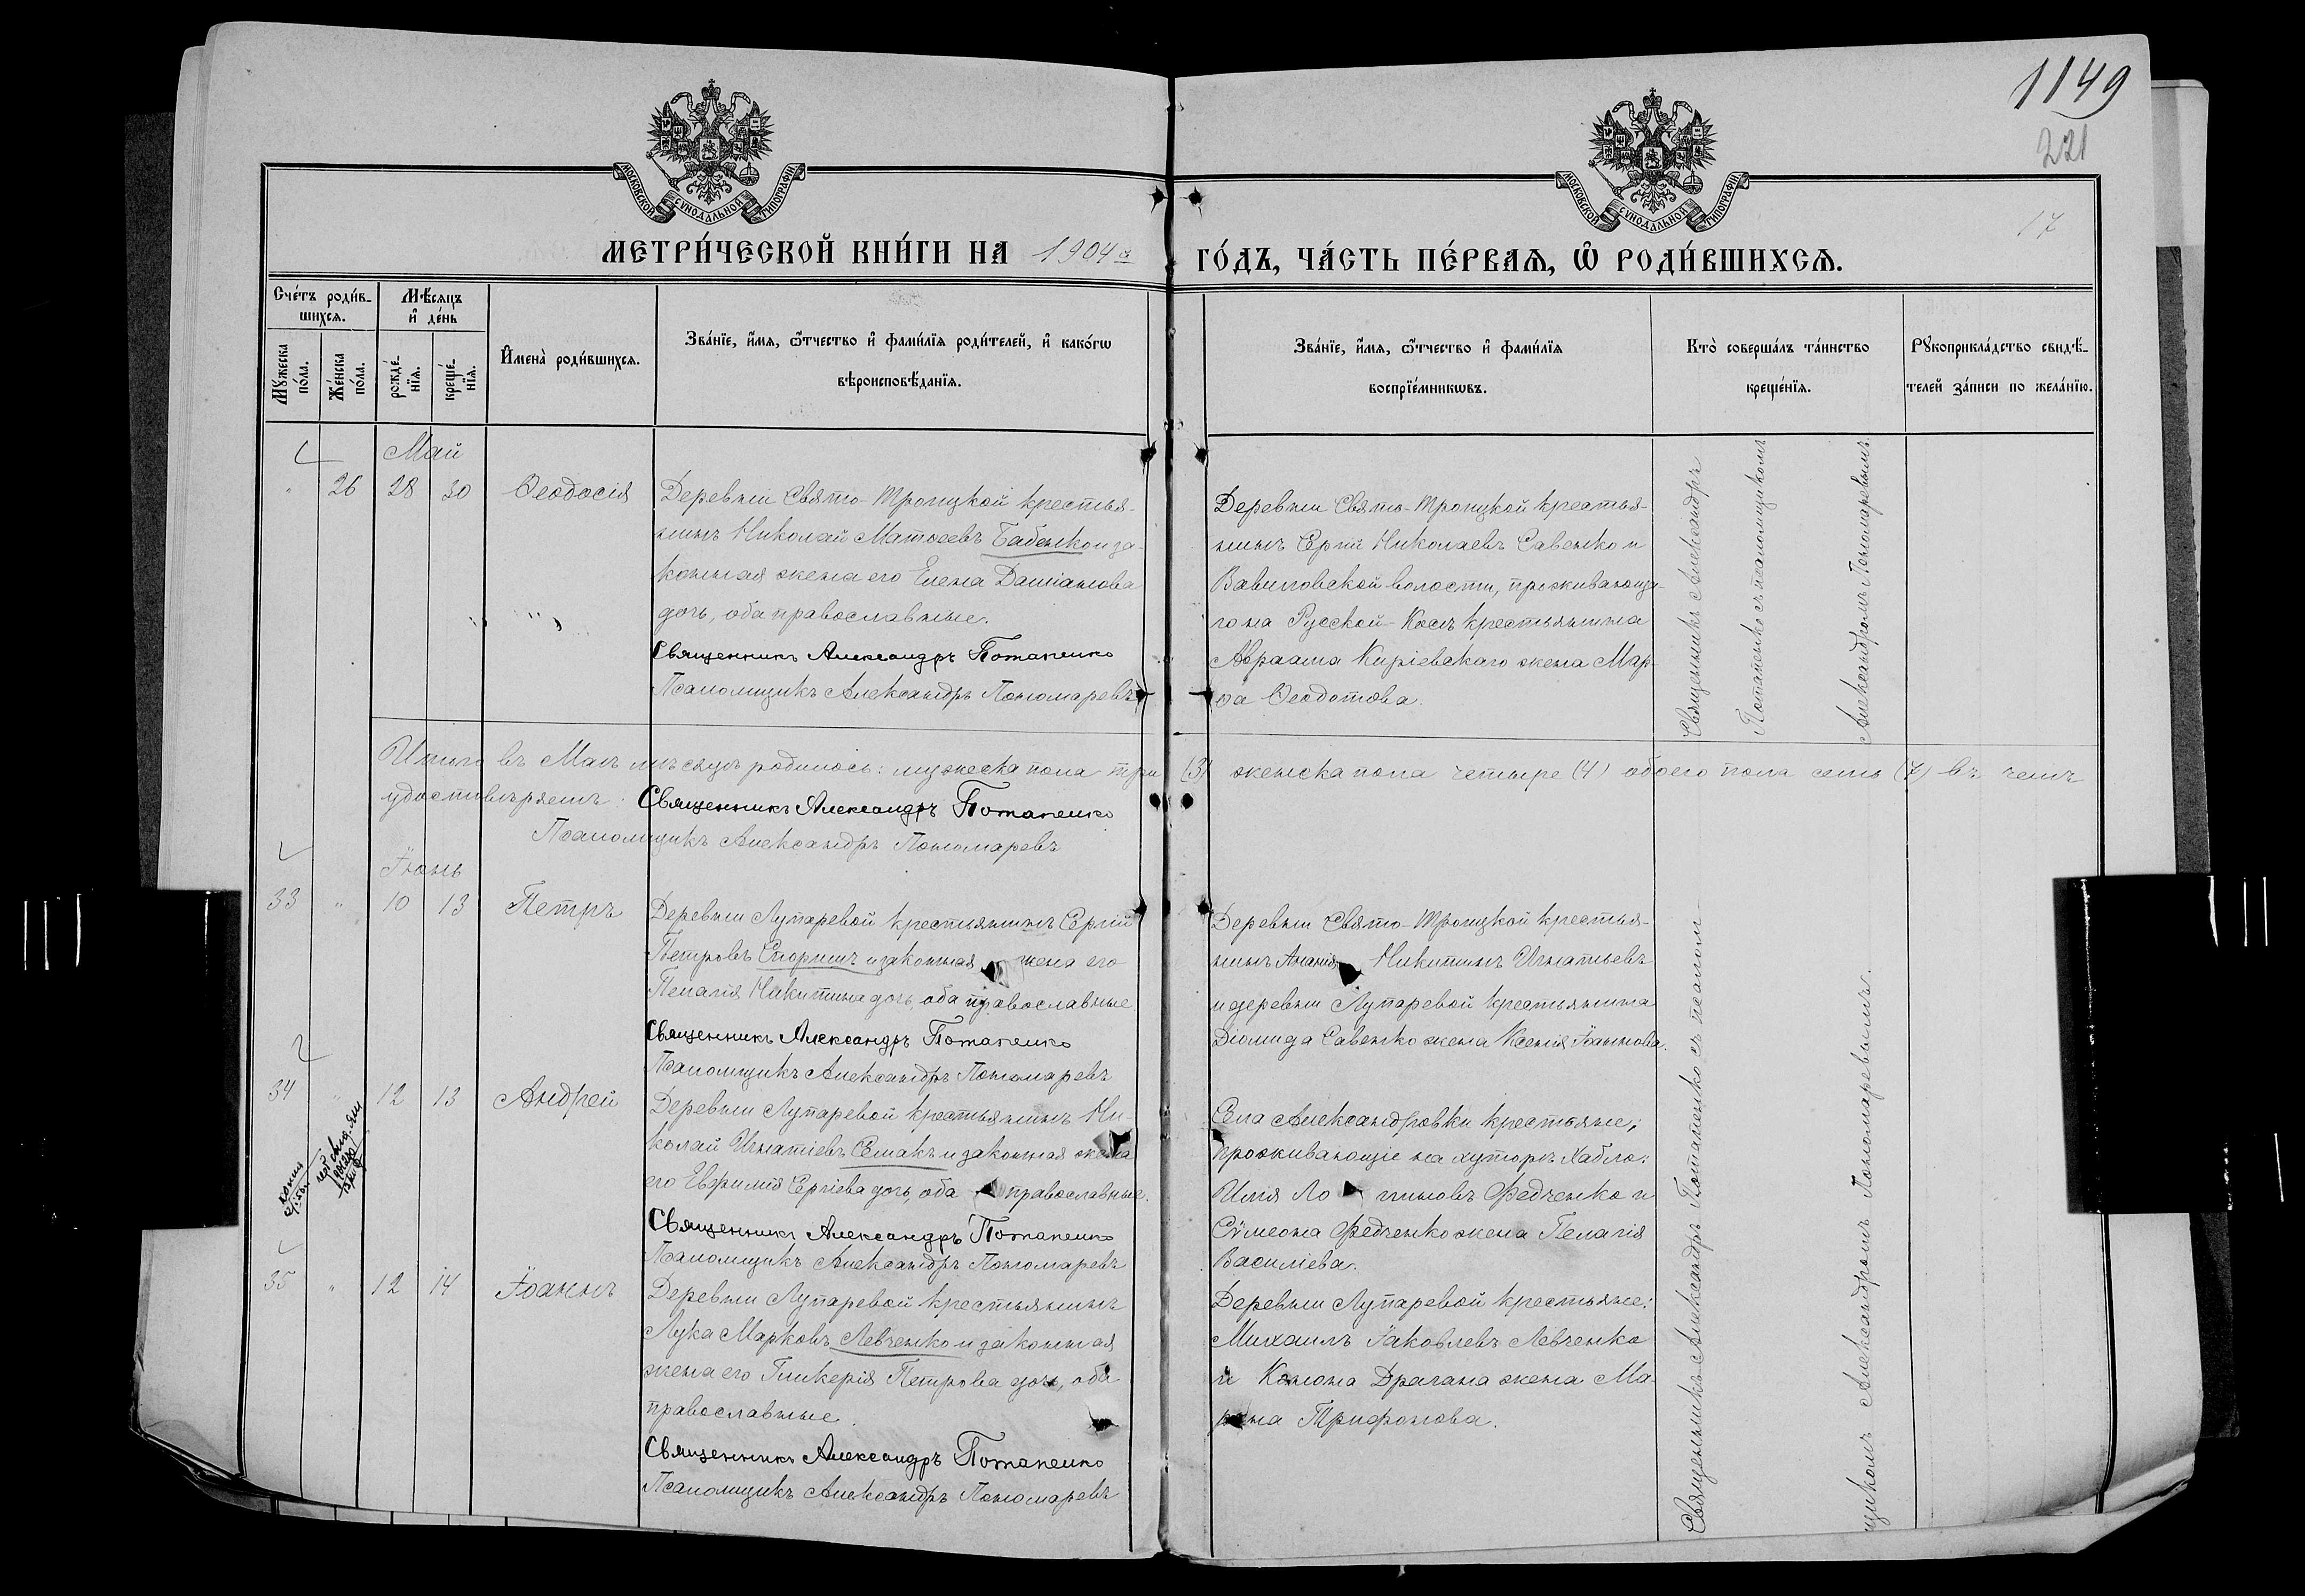 1149
221
17
МОСКОВСКОЙ СѴНОДАЛЬНОЙ ТИПОГРАФІИ
МОСКОВСКОЙ СѴНОДАЛЬНОЙ ТИПОГРАФІИ
МЕТРИ́ЧЕСКОЙ КНИ́ГИ НА 1904 й ГО́ДЪ, ЧА́СТЬ ПЕ́РВАѦ, Ѽ РОДИ́ВШИХСѦ.
Сче́тъ роди́вшихсѧ.
Мꙋ́жеска по́ла.
Же́нска по́ла.
Мѣ́сѧцъ и҆ де́нь
рожде́нїѧ.
креще́нїѧ.
И҆мена̀ роди́вшихсѧ.
Зва́нїе, и҆́мѧ, ѻ҆́тчество и҆ фами́лїѧ роди́телей, и҆ како́гѡ вѣроисповѣ́данїѧ.
Зва́нїе, и҆́мѧ, ѻ҆́тчество и҆ фами́лїѧ воспрїе́мникѡвъ.
Кто̀ соверша́лъ та́инство креще́нїѧ.
Рꙋкоприкла́дство свидѣ́телей за́писи по жела́нїю.
Май
" 26 28 30 Ѳеодосія
Деревни Свято-Троицкой крестья-
нинъ Николай Матѳеевъ Бабенко и за-
конная жена его Елена Даміанова
дочь, оба православные.
Священникъ Александръ Потапенко
Псаломщикъ Александръ Пономаревъ
Деревни Свято-Троицкой крестья-
нинъ Сергій Николаевъ Савенко и
Вавиловской волости, проживающа-
го на Русской-Косѣ крестьянина
Авраама Киріевскаго жена Мар-
ѳа Ѳеодотова.
Священникъ Александръ
Потапенко съ псаломщикомъ
Александромъ Пономаревымъ.
Итого въ Маѣ мѣсяцѣ родилось: мужеска пола три (3) женска пола четыре (4) обоего пола семь (7) въ чемъ
удостовѣряемъ: Священникъ Александръ Потапенко
Псаломщикъ Александръ Пономаревъ
Іюнь
33 " 10 13 Петръ
Деревни Лупаревой крестьянинъ Сергій
Петровъ Спориш и законная жена его
Пелагія Никитина дочь, оба православные
Священникъ Александръ Потапенко
Псаломщикъ Александръ Пономаревъ
Деревни Свято-Троицкой крестья-
нинъ Ананія Никитинъ Игнатьевъ
и деревни Лупаревой крестьянина
Діомида Савенко жена Ксенія Іоаннова.
34 " 12 13 Андрей
Деревни Лупаревой крестьянинъ Ни-
колай Игнатіевъ Семакъ и законная жена
его Евфимія Сергіева дочь, оба православные.
Священникъ Александръ Потапенко
Псаломщикъ Александръ Пономаревъ
Села Александровки крестьяне,
проживающіе на хуторѣ Хабло:
Илія Ло гиновъ Федченко и
Сѵмеона Федченко жена Пелагія
Василіева.
35 " 12 14 Іоаннъ
Деревни Лупаревой крестьянинъ
Лука Марковъ Левченко и законная
жена его Гликерія Петрова дочь, оба
православные.
Священникъ Александръ Потапенко
Псаломщикъ Александръ Пономаревъ
Деревни Лупаревой крестьяне:
Михаилъ Іаковлевъ Левченко
и Конона Драгана жена Ма-
рина Трифонова.
Священникъ Александръ Потапенко съ псалом-
щикомъ Александромъ Пономаревымъ.